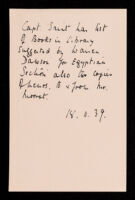 Capt Saint has list
of Books in Library
Suggested by Warren
Dawson for Egyptian
Section also two copies
of from Mr.
18. 39.